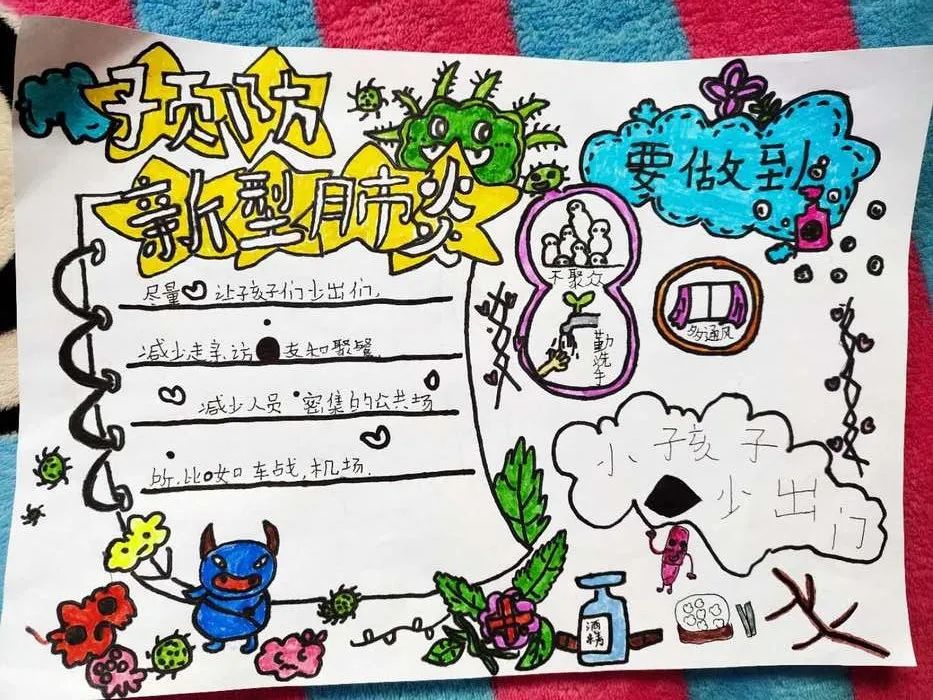 预防
新型肺炎
要做到
尽量 让子孩子们少出们,
减少走亲.访 友和聚餐.
减少人员 密集的公共场
所.比如 车战,机场.
不聚众
勤洗手
多通风
小孩子
少出门
酒精